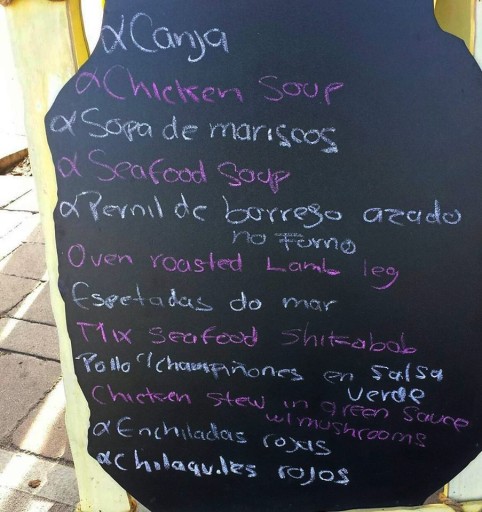 α Canja
α Chicken Soup
α Sopa de mariscos
α Seafood Soup
α Pernil de borrego azado
no Forno
Oven roasted Lamb leg
Espetadas do mar
Mix Seafood Shitkabob
Pollo y champiñones en salsa
verde
Chicken stew in green sauce
w/mushrooms
α Enchiladas rojas
α Chilaquiles rojos